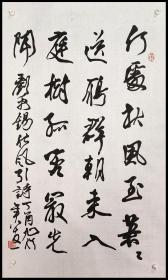 何處秋風至蕭々
送鴈群朝来入
庭樹孤客最先
聞 劉禹錫秋風引詩丁酉